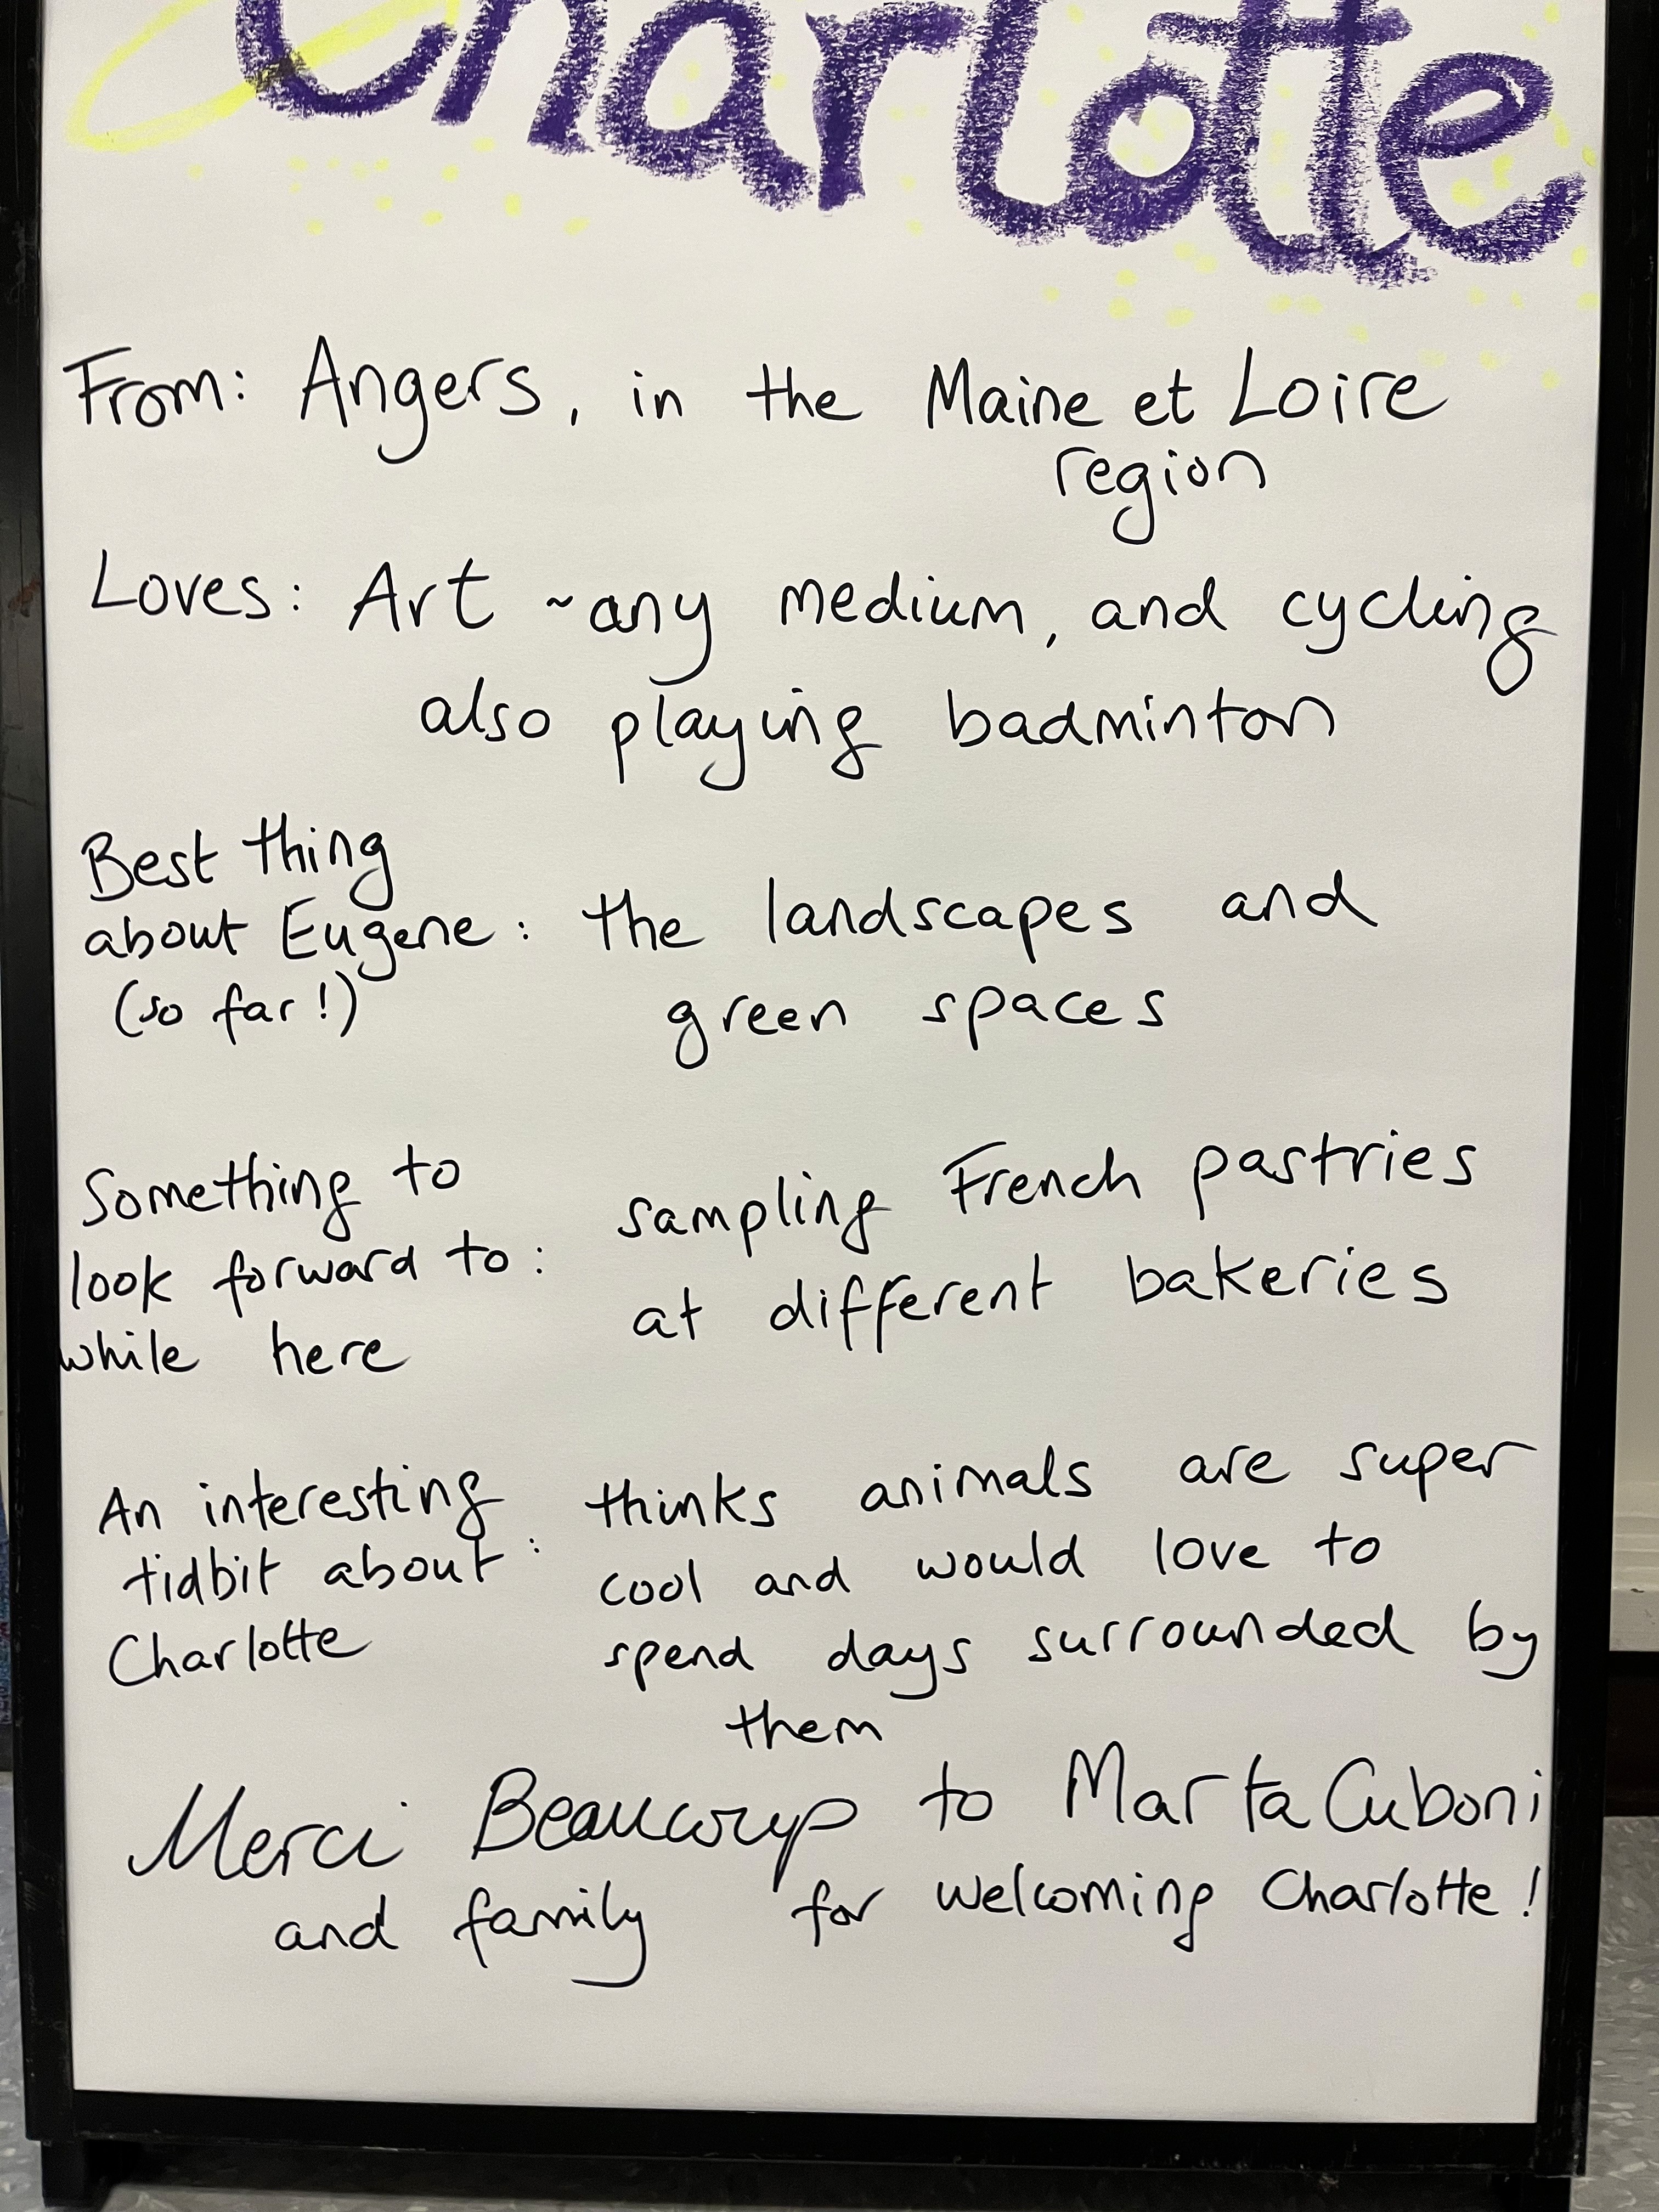 Charlotte
From: Angers, in the Maine et Loire
region
Loves: Art ~ any medium, and cycling
also playing badminton
Best thing
about Eugene: the landscapes and
(so far!) green spaces
Something to sampling French pastries
look forward to: at different bakeries
while here
An interesting thinks animals are super
tidbit about: cool and would love to
Charlotte spend days surrounded by
them
Merci Beaucoup to Marta Cuboni
and family for welcoming Charlotte!